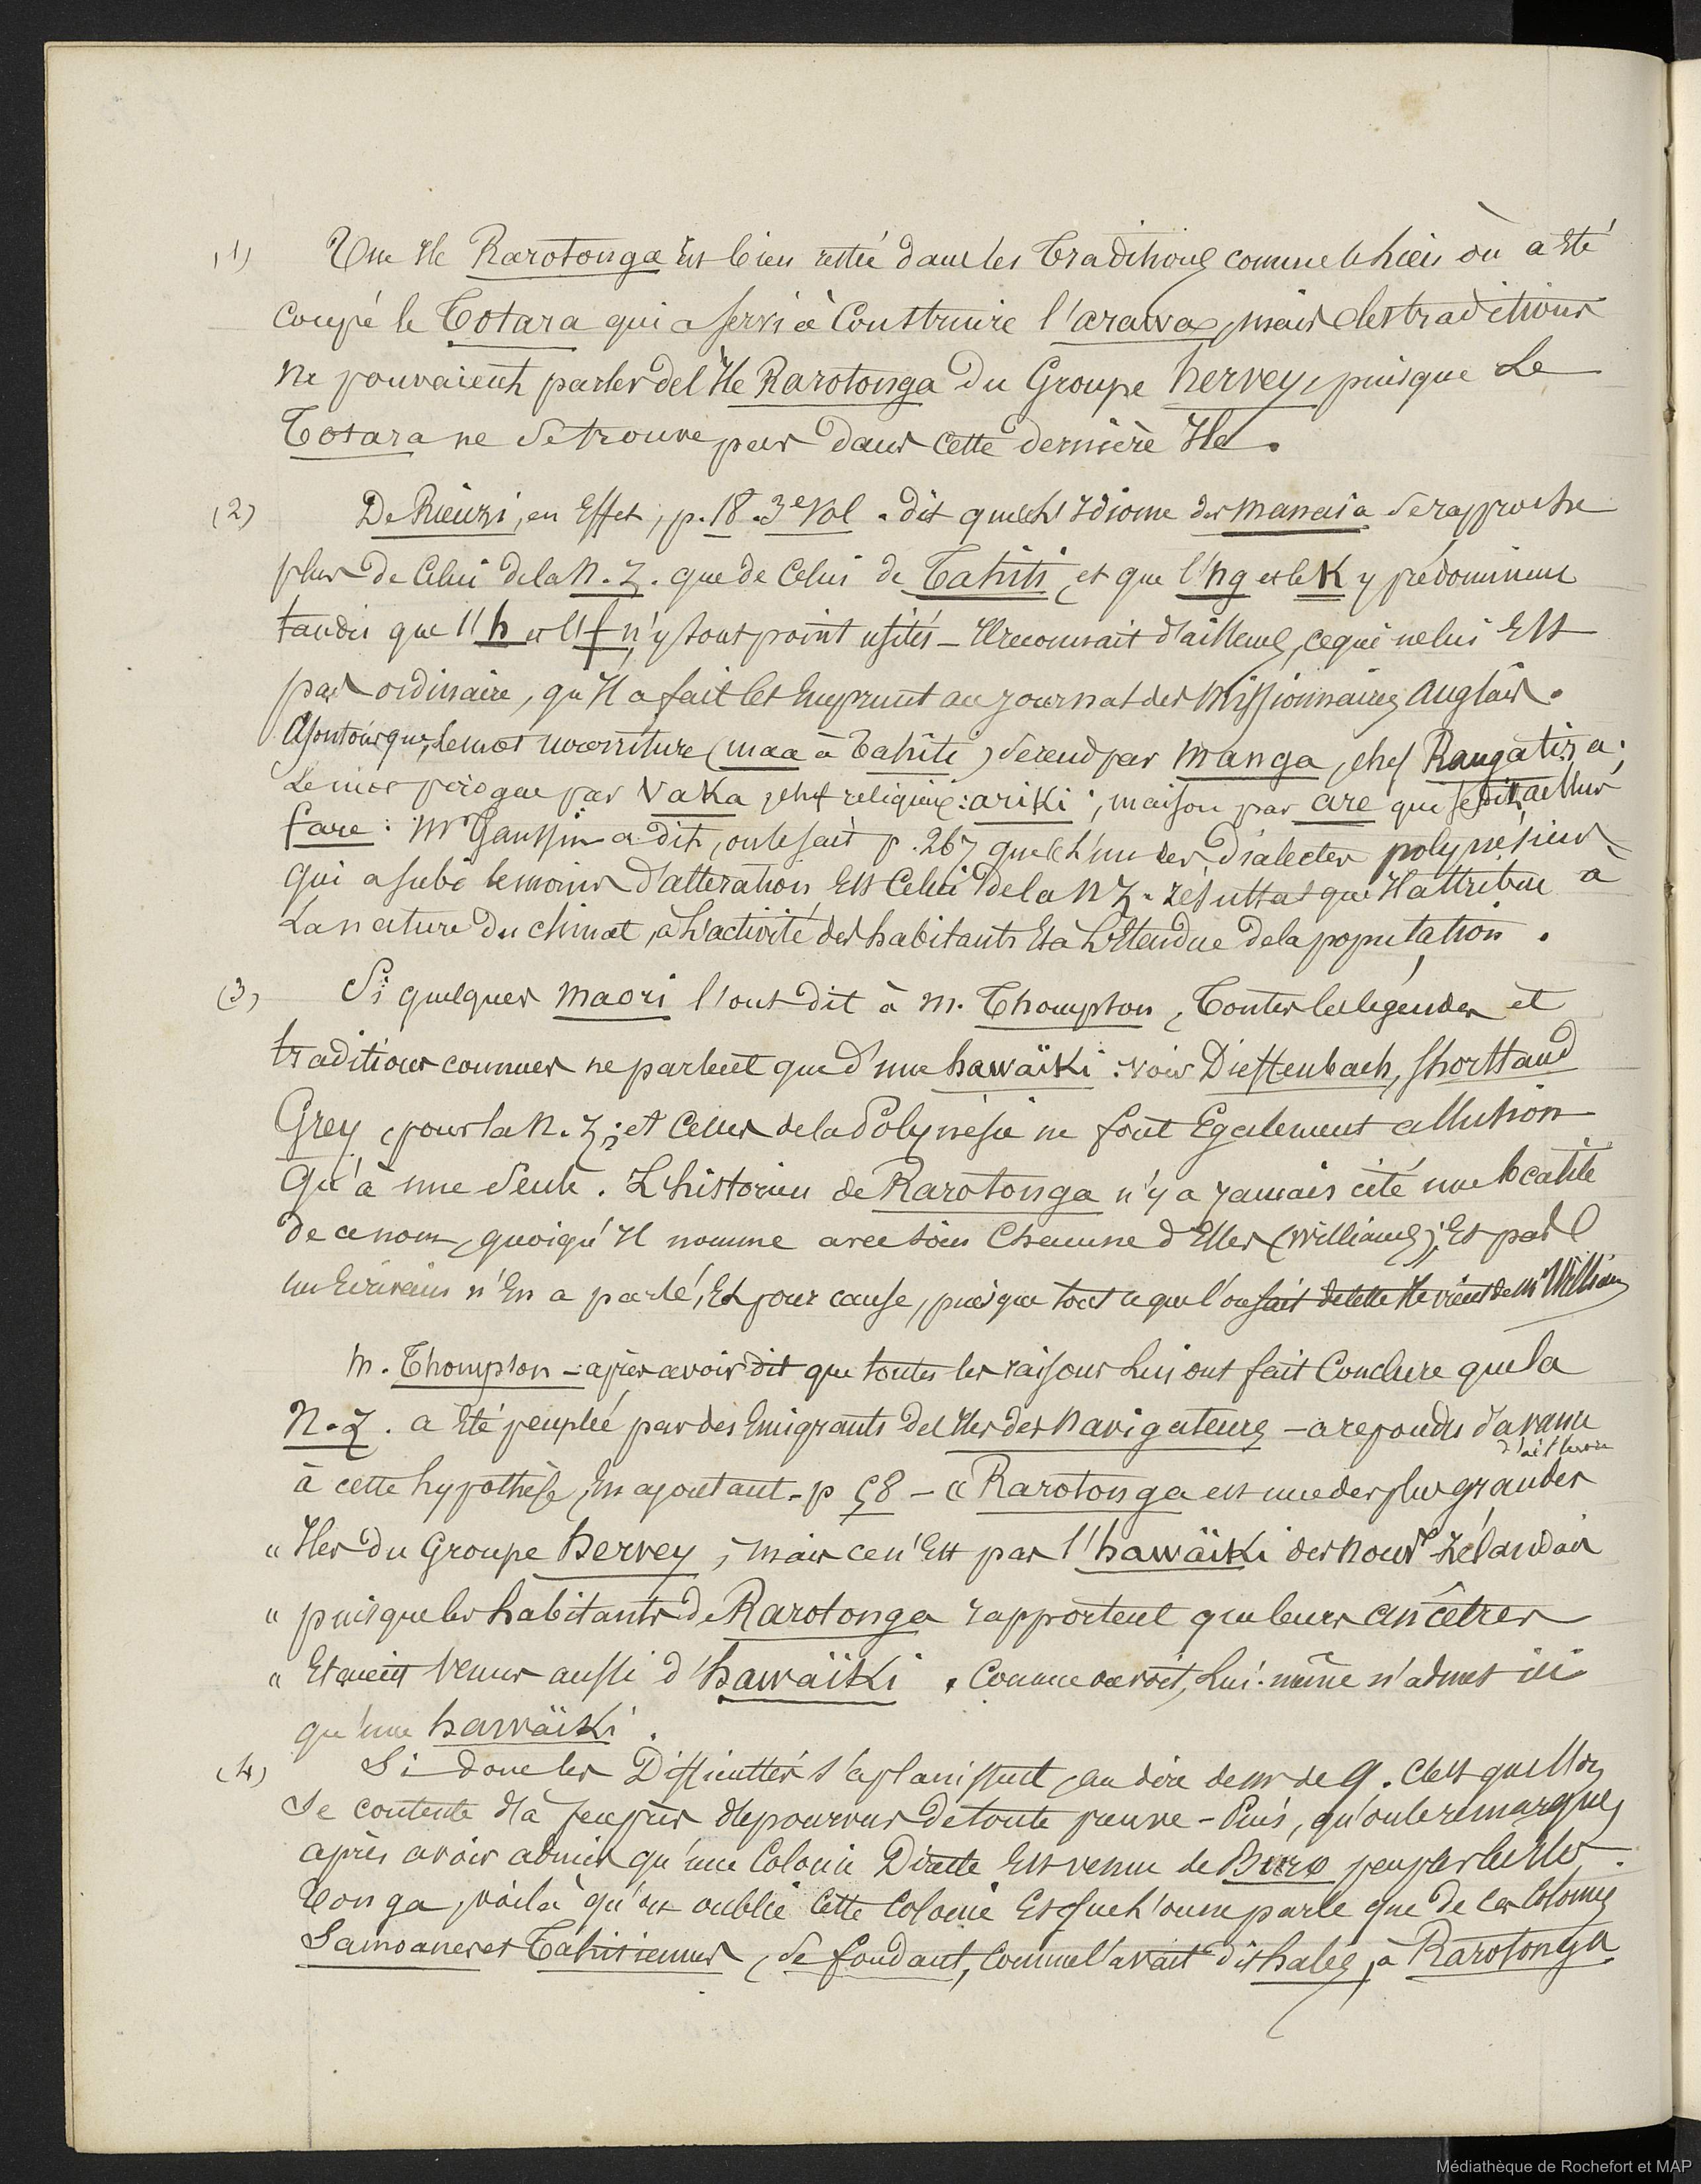 (1) Une Ile Rarotonga est bien restée dans les traditions comme le lieu où a été
coupé le Totara qui a servi à construire l'arawa, mais les traditions
ne pouvaient parler de l'Ile Rarotonga du Groupe hervey, puisque le
Totara ne se trouve pas dans cette dernière Ile.
(2) De Rienzi, en effet, p. 18. 3e vol. dit que l'Idiome des mangaia se rapproche
plus de celui de la N. Z. que de celui de Tahiti, et que l'ng et le K y prédominent
tandis que l'h et l'f n'y sont point usités - Il reconnait d'ailleurs, ce qui ne lui est
pas ordinaire, qu'Il a fait cet emprunt au journal des missionnaires anglais.
Ajoutons que, le mot nourriture (maa à Tahiti) se rend par manga, chef Rangatira;
Le mot pirogue par vaka, chef religieux: ariki; maison par are qui se dit ailleurs
fare: Mr Gaussin a dit, on le sait p. 267 que l'un des dialectes polynésiens
qui a subi le moins d'altération, est celui de la N Z. résultat qu'Il attribue à
La nature du climat, à l'activité des habitants et à l'étendue de la population.
(3) Si quelques maori l'ont dit à M. Thompson, toutes les légendes et
traditions connues ne parlent que d'une hawaïki: voir Dieffenbach, Shortland
Grey, pour la N. Z; et celles de la Polynésie ne font également allusion
qu'à une seule. L'historien de Rarotonga n'y a jamais cité une localité
de ce nom, quoiqu'Il nomme avec soin chacune d'Elles (Williams); et pas
un Ecrivain n'en a parlé, et pour cause, puisque tout ce que l'on sait de cette Ile vient de Mr Williams
M. Thompson - après avoir dit que toutes les raisons lui ont fait conclure que la
N. Z. a été peuplée par des émigrants des Iles des navigateurs - a répondu d'avance
d'ailleurs
à cette hypothèse, en ajoutant - p 58 - « Rarotonga est une des plus grandes
" Iles du Groupe hervey, mais ce n'est pas l'hawaïki des nouv. Zélandais
" puisque les habitants de Rarotonga rapportent que leurs ancêtres
" Etaient venus aussi d'hawaïki. Comme on voit, lui-même n'admet ici
qu'une hawaïki.
(4) Si donc les Difficultés s'aplanissent, au dire de mr de Q. c'est qu'Il
se contente d'à peu près dépourvus de toute preuve - Puis, qu'on le remarque,
après avoir admis qu'une Colonie Directe est venue de Buro peupler les Iles
Tonga, voilà qu'on oublie cette colonie et que l'on ne parle que de ces Colonies
Samoanes et Tahitiennes, se fondant, comme l'avait dit hale, à Rarotonga
Médiathèque de Rochefort et MAP